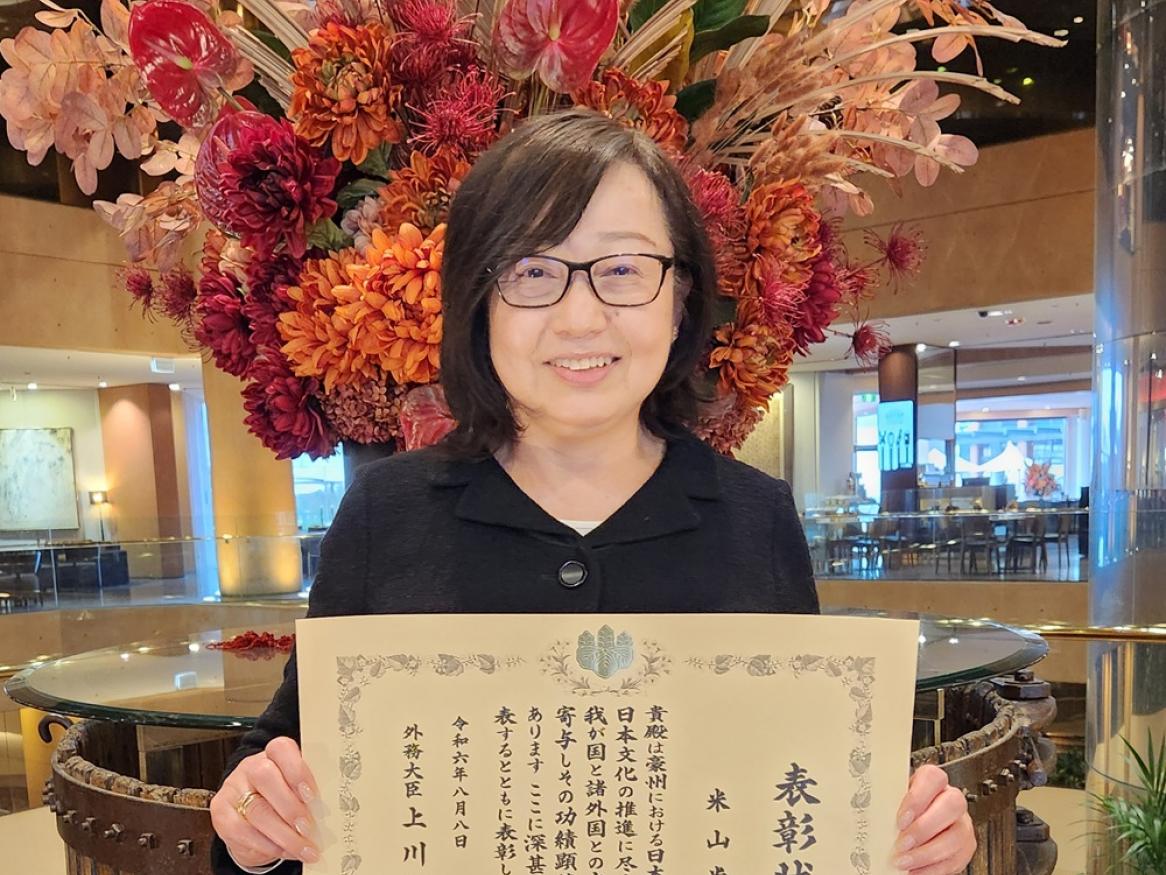 表彰状
米山
貴殿は豪州における日本
日本文化の推進に尽
我が国と諸外国との
寄与しその功績顕
あります ここに深甚
表するとともに表彰し
令和六年八月八日
外務大臣 上川